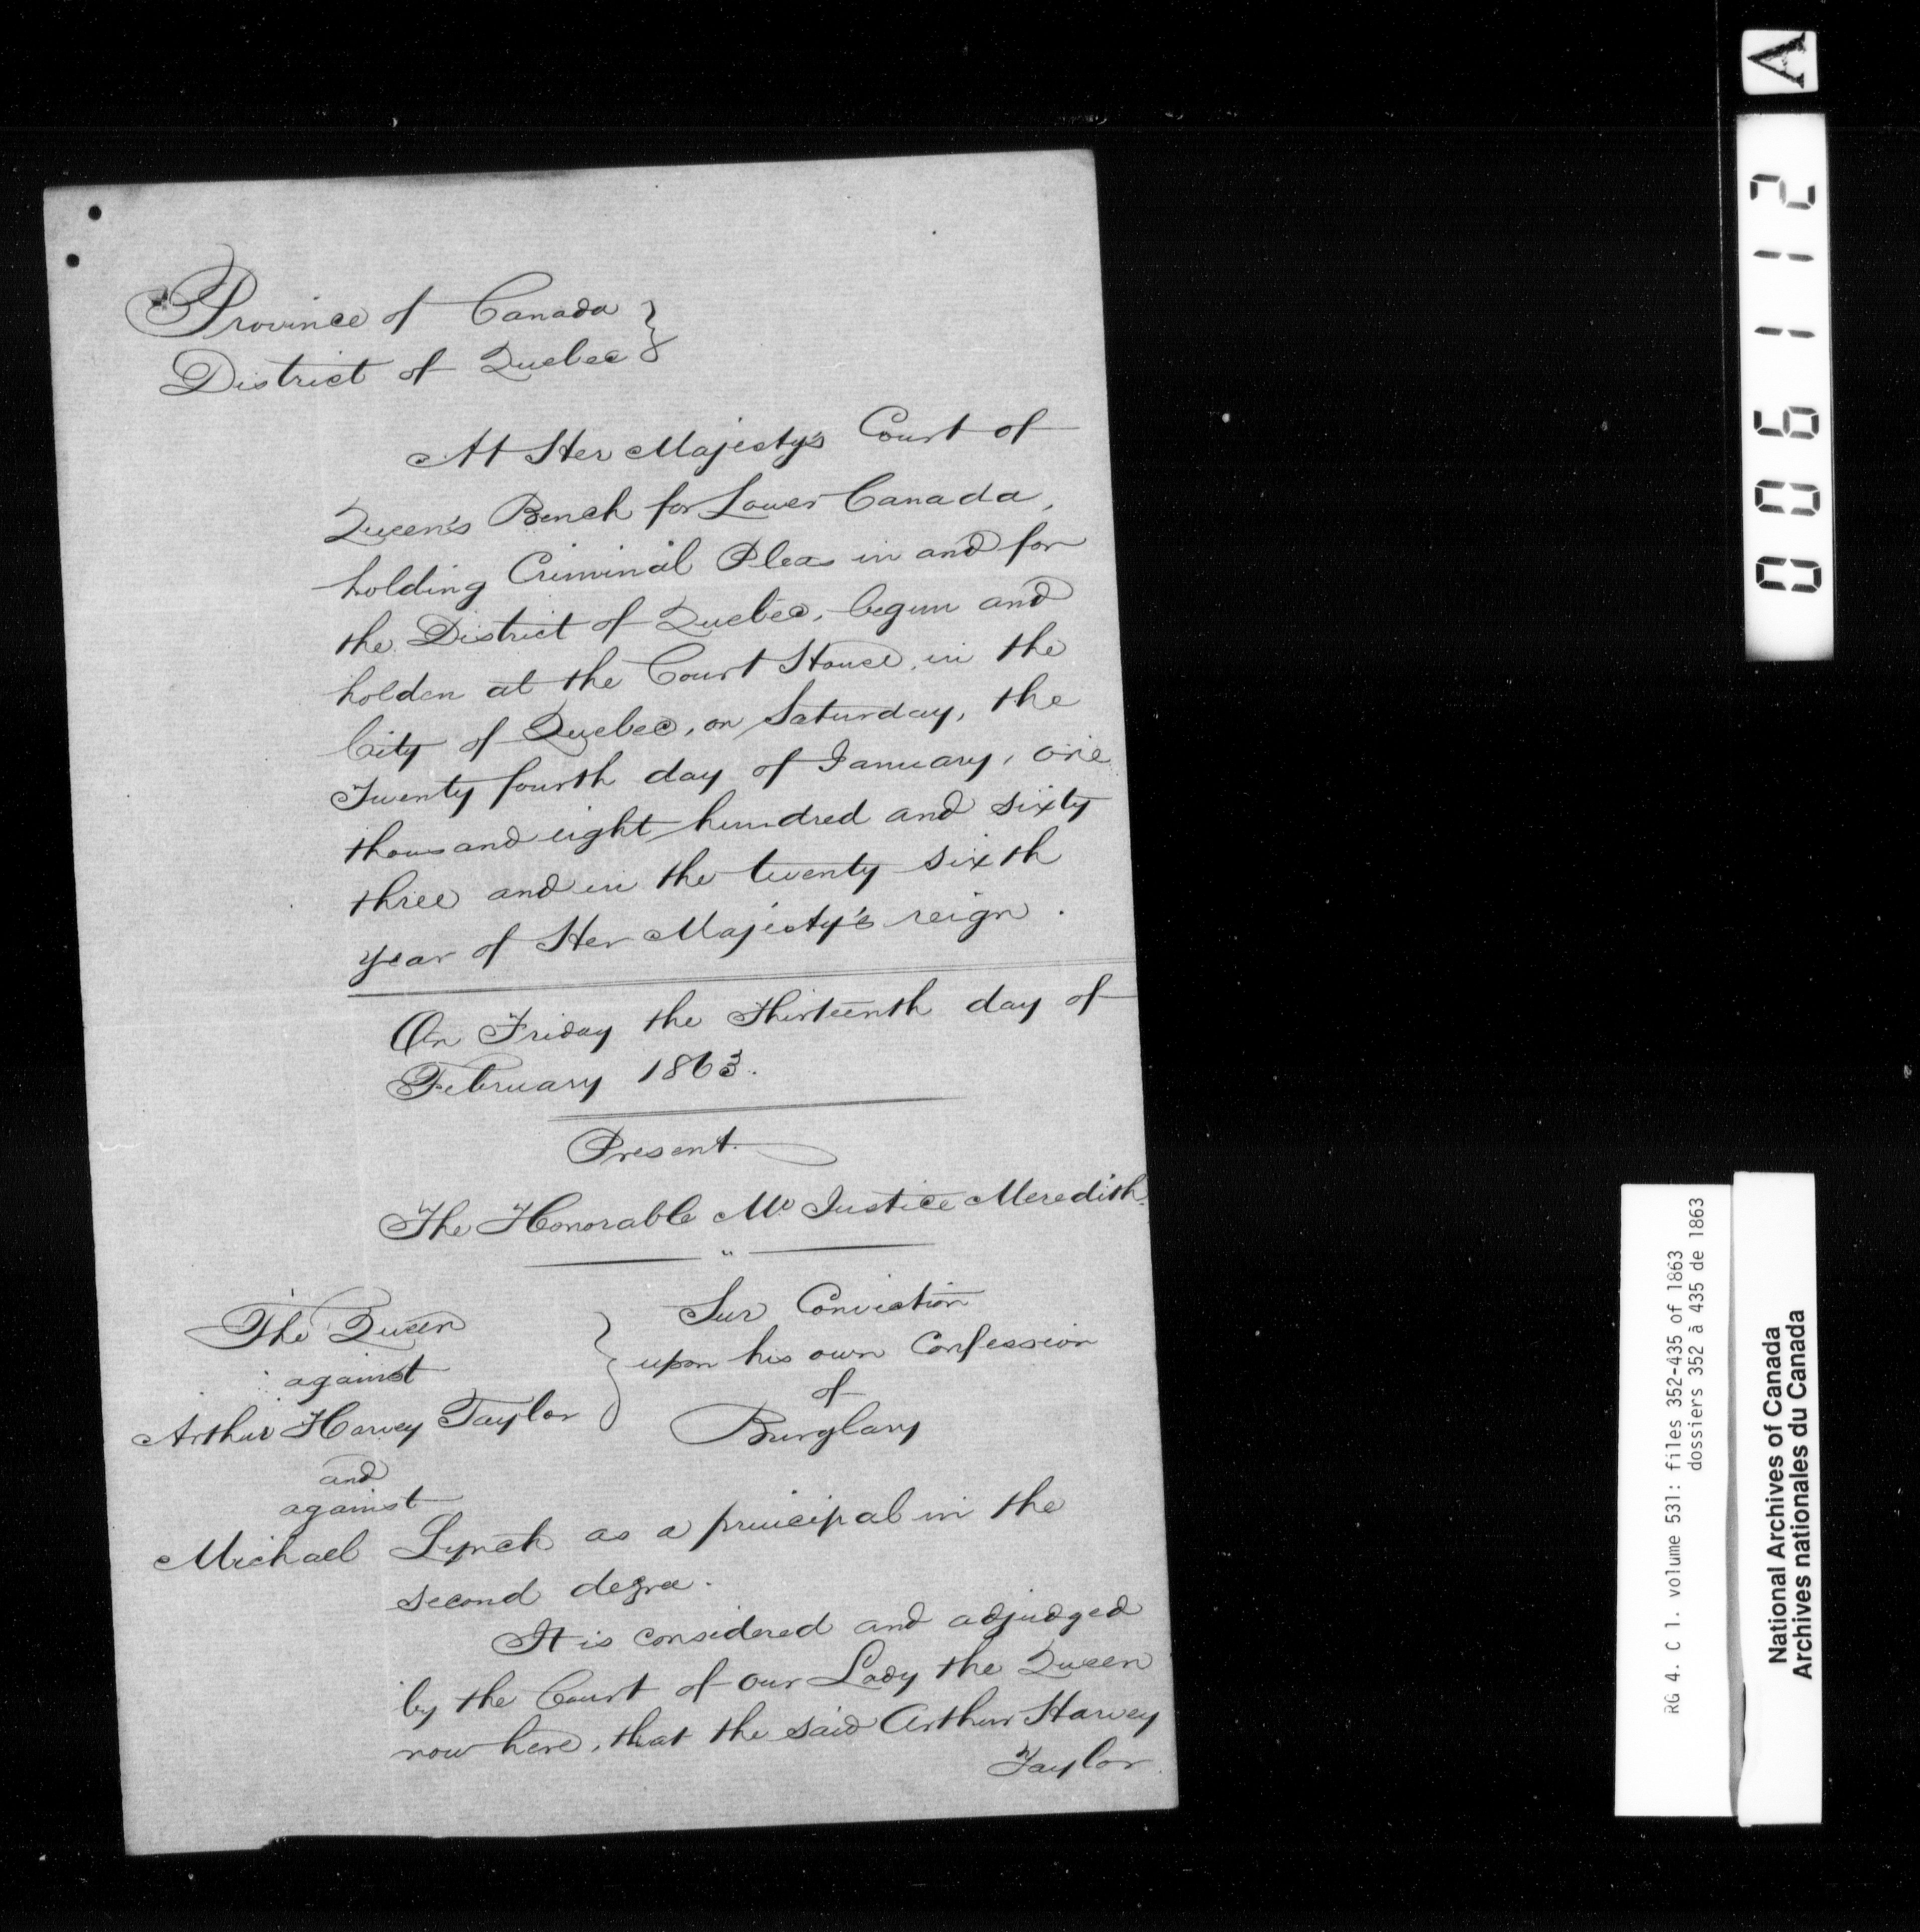 Province of Canada }
District of Quebec }
At Her Majesty's Court of
Queen's Bench for Lower Canada,
holding Criminal Pleas in and for
the District of Quebec, begun and
holden at the Court House, in the
City of Quebec, on Saturday, the
Twenty fourth day of January, one
thousand eight hundred and sixty
three and in the twenty sixth
year of Her Majesty's reign.
On Friday the Thirteenth day of
February 1863.
Present.
The Honorable Mr Justice Meredith.
"
The Queen
against
Arthur Harvey Taylor
}
Sur Conviction
upon his own Confession
of
Burglary
and
against
Michael Lynch as a principal in the
second degree.
It is considered and adjudged
by the Court of our Lady the Queen
now here, that the said Arthur Harvey
Taylor
A
006112
RG 4. C 1. volume 531: files 352-435 of 1863
dossiers 352 à 435 de 1863
National Archives of Canada
Archives nationales du Canada